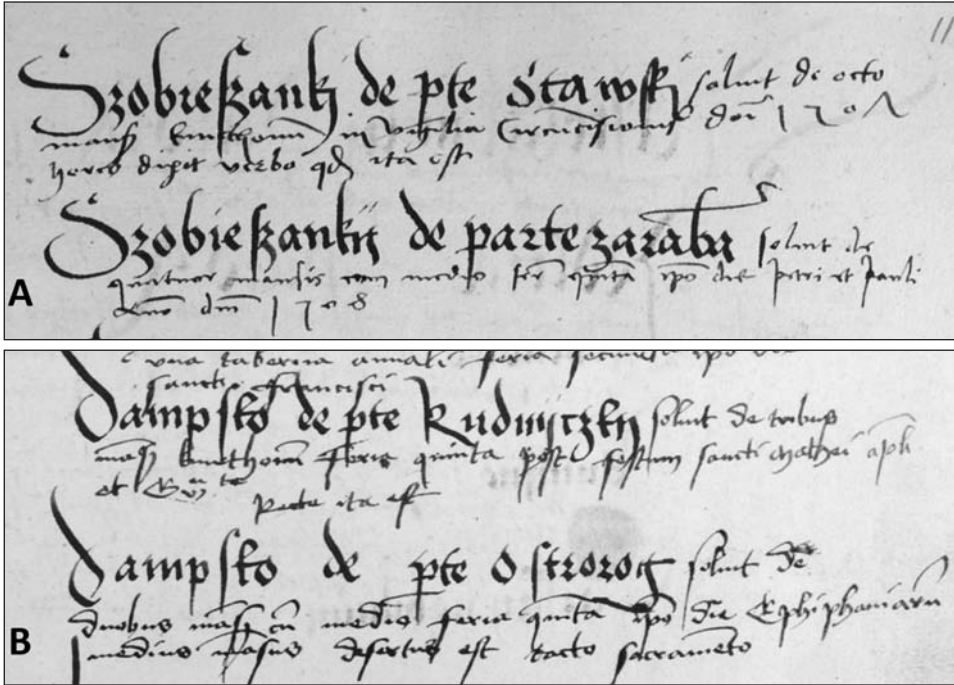 11
Szobieszankj de pte Stawskj soluit de octo
mansz kmethonu in vigilia Circucisionis doi 1507
heres dixit verbo qd ita est
Szobieszankÿ de parte zaraba soluit de
quatuor mansis cum medio feria quinta ipo die petri et pauli
dmi 1508
A
vna taberna annali feria secunda ipo die
sancti francisci
Dampsko de pte Rudniczky soluit de tribus
mansz kmethonu feria quinta post festum sancti Mathei apli
et
parte ita est
Dampsko de pte Ostrorog soluit de
duobus mansz cu medio feria quinta ipo die Ephiphaniaru
B
medius mansus desertus est tacto sacrameto